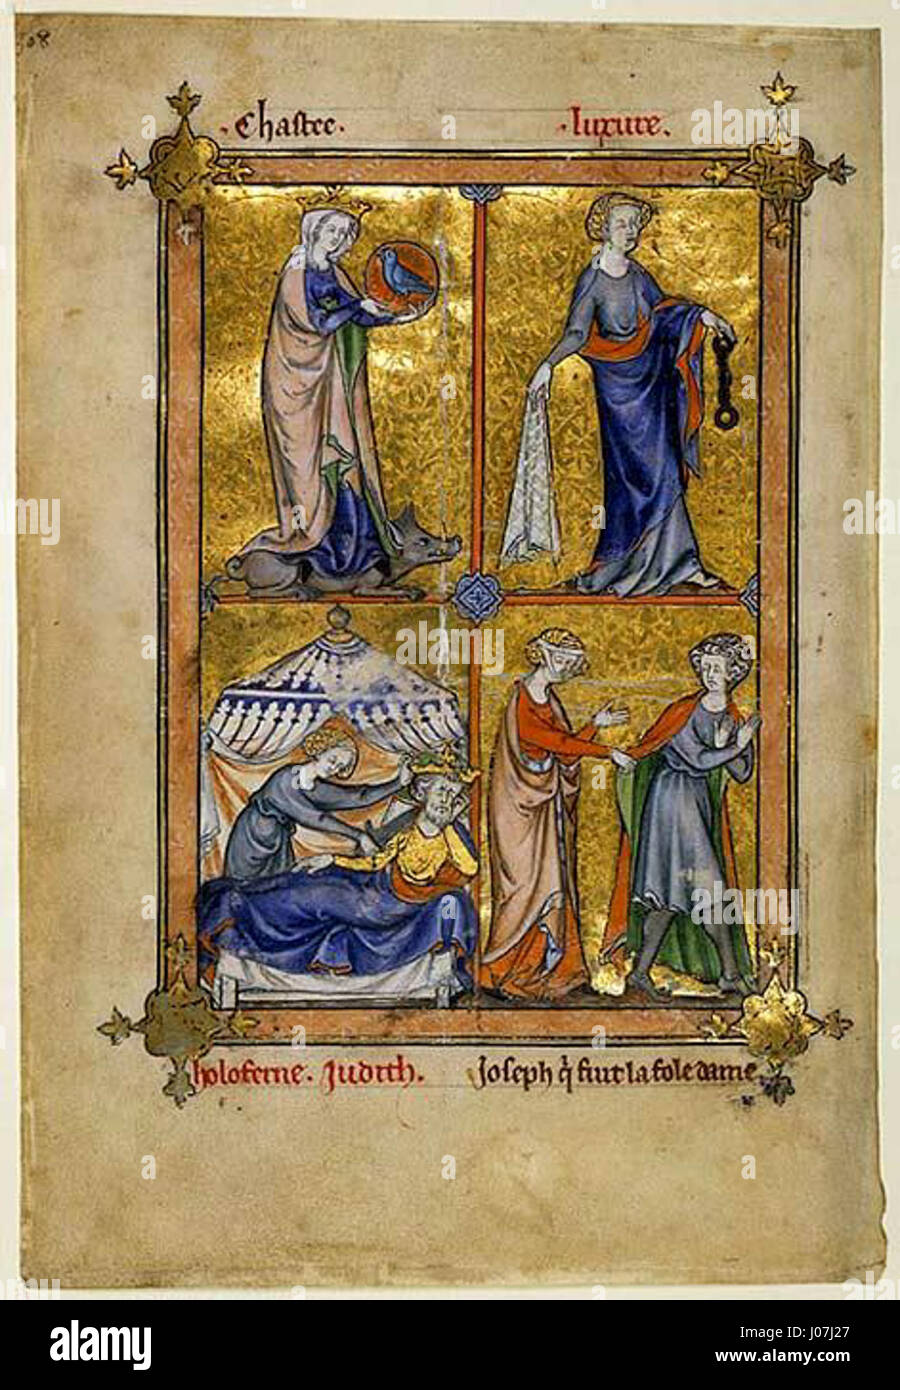 ·Chastee.
·luxure.
holoferne. Judith.
Joseph q̄ fiut la fole dame
alamy
Image ID: J07J27
www.alamy.com